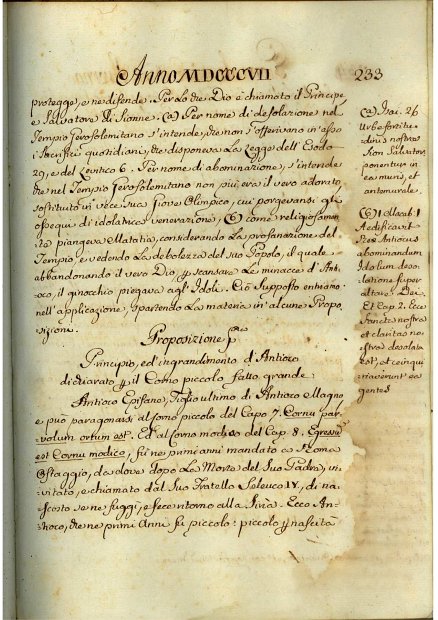 Anno MDCCCVII
233
protegge, e ne difende. Per lo che Dio è chiamato il Principe,
e Salvatore di Sionne. (a) Per nome di desolazione nel
Tempio Gerosolemitano s'intende, che non s'offerivano in esso
i Sacrificj quotidiani, che disponeva La Legge dell'Esodo
29, e del Levitico 6. Per nome di abominazione, s'intende
che nel Tempio Gerosolemitano non più era il vero adorato,
sostituito in vece sua Giove Olimpico, cui porgevansi gli
ossequi di idolatrica venerazione, (b) come religiosamen-
te piangeva Matatia, considerando La profanazione del
Tempio, e vedendo La debolezza del suo Popolo, il quale
abbandonando il vero Dio p scansare Le minacce d'Anti-
oco, il ginocchio piegava agl'Idoli. Ciò supposto entriamo
nell'applicazione, spartendo La materia in alcune Propo-
sizioni.
Proposizione pma
Principio, ed ingrandimento d'Antioco
dichiarato p il Corno piccolo fatto grande.
Antioco Epifane, Figlio ultimo di Antioco Magno
e può paragonarsi al Corno piccolo del Capo 7. Cornu par-
volum ortum est. Ed al Corno modico del Cap. 8. Egressum
est Cornu modico, fù ne primi anni mandato a Roma
Ostaggio, da dove dopo La Morte del Suo Padre, in-
vitato, e chiamato dal Suo Fratello Seleuco IV, di na-
scosto se ne fuggì, e fece ritorno alla Siria. Ecco An-
tioco, che ne primi Anni fu piccolo: piccolo p nascita
(a) Isai. 26
Urbs fortitu-
dinis nostræ
Sion Salvator,
ponentur in
ea muris, et
antemurale.
(b) 1 Macab. 1
Aedificavit
Rex Antiocus
abominandum
Idolum deso-
lationis super
altare Dei.
Et Cap. 2. Ecce
Sancta nostra
et claritas no-
stra desolata
est, et coinqui-
naverunt ea
gentes